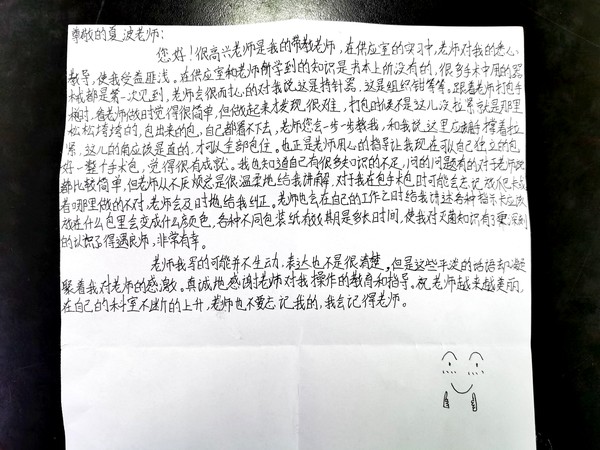 尊敬的夏波老师:
您好!很高兴老师是我的带教老师,在供应室的实习中,老师对我的悉心
教导,使我受益匪浅。在供应室和老师所学到的知识是书本上所没有的,很多手术中用的器
械都是第一次见到,老师会很而扎的对我说这是持针器,这是组织钳等等。跟着老师打包手
术时,看老师做时觉得很简单,但做起来才发现很难,打包时候不是这儿没拉紧就是那里
松松垮垮的,包出来的包,自己都看不下去,老师您会一步一步教我,和我说这里应该撑着拉
紧,这儿的角应该是直的,才可以全部包住。也正是老师用心的指导让我现在可以自己独立的包
好一整个手术包,觉得很有成就。我也知道自己有很多知识的不足,问的问题有的对于老师
都比较简单,但老师从不厌烦总是很温柔地给我讲解,对于我在包手术包时可能会忘记放化学
者哪里做的不对,老师会及时地给我纠正。老师也会在自己的工作之时给我讲述各种指示卡应该
放在什么包里会变成什么颜色,各种不同包装纸有效期是多长时间,使我对灭菌知识有了更深刻
的认识了得遇良师,非常有幸。
老师我写的可能并不生动,表达也不是很清楚,但是这些平淡的话语却凝
聚着我对老师的感激。真诚地感谢老师对我操作的教育和指导。祝老师越来越美丽,
在自己的科室不断的上升,老师也不要忘记我的,我会记得老师。